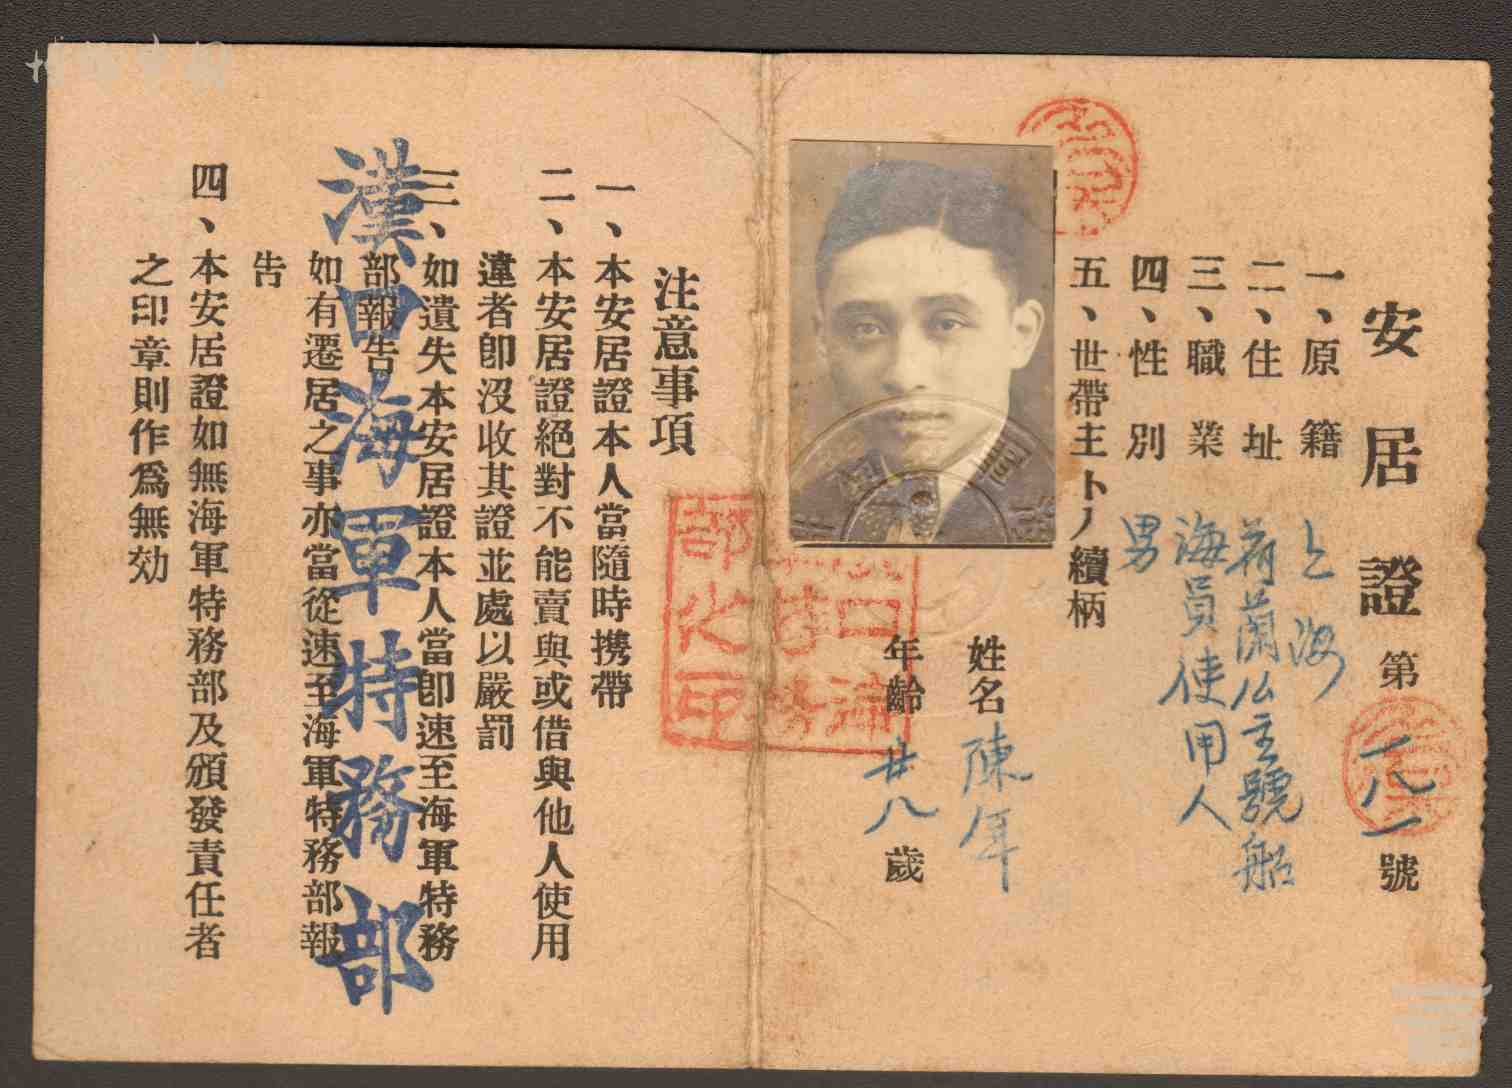 安居證
第一八一號
一、原籍 上海
二、住址 荷蘭公主號船
三、職業 海員使用人
四、性別 男
五、世帶主トノ續柄
姓名 陳年
年齡 廿八歲
注意事項
一、本安居證本人當隨時携帶
二、本安居證絕對不能賣與或借與他人使用
違者卽沒收其證並處以嚴罰
三、如遺失本安居證本人當卽速至海軍特務
部報告
如有遷居之事亦當從速至海軍特務部報
告
四、本安居證如無海軍特務部及頒發責任者
之印章則作爲無効
漢口海軍特務部